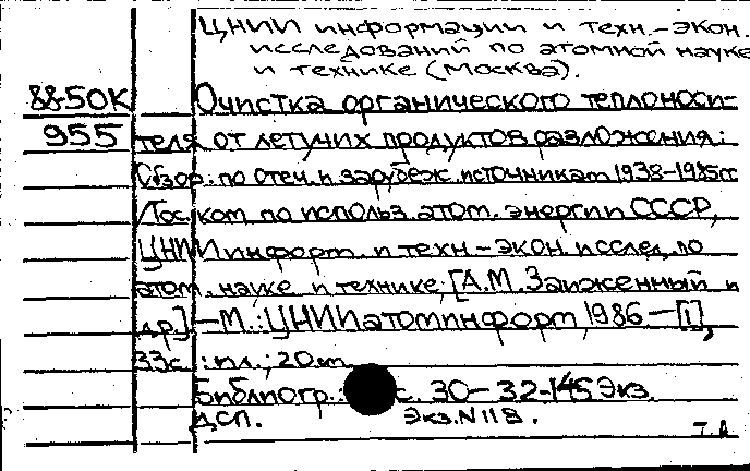 ЦНИИ информации и техн.-экон.
исследований по атомной науке
и технике (Москва).
88-50К Очистка органического теплоноси-
955 теля от летучих продуктов разложения:
Обзор. по отеч. и зарубеж. источникам 1938-1985гг
/Гос. ком. по использ. атом. энергии СССР,
ЦНИИ информ. и техн.-экон. исслед. по
атом. науке и технике; [А.М. и
др.].-М.:ЦНИИатоминформ, 1986.-[1],
33с. : ил.; 20см
Библиогр.: с. 30-32.-145экз.
ДСП. Экз.N118.